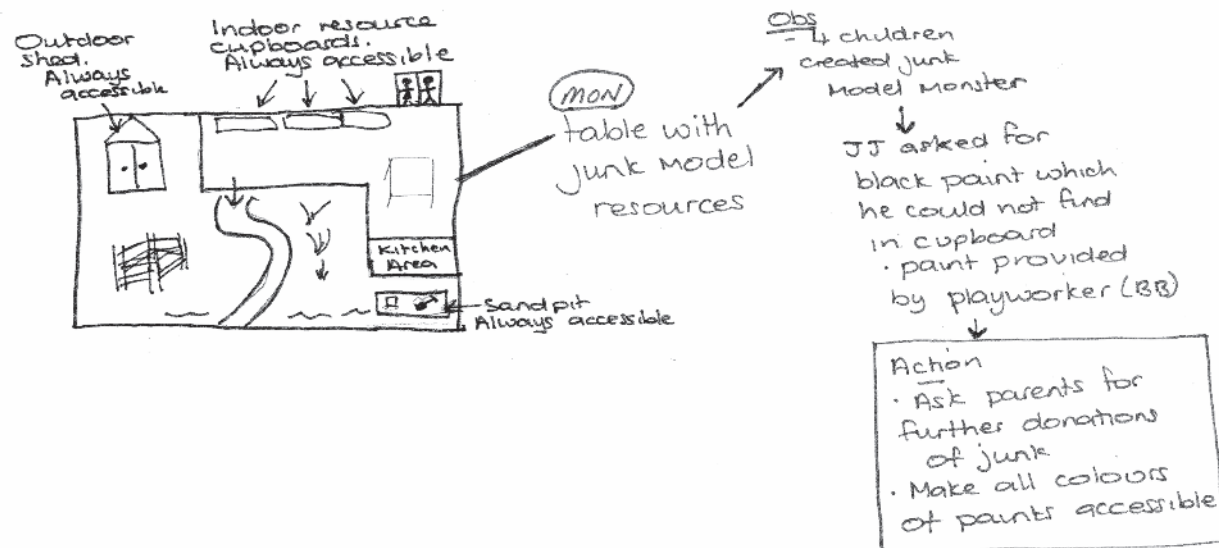 Outdoor
shed.
Always
accessible
Indoor resource
cupboards.
Always accessible
Kitchen
Area
Sandpit
Always accessible
MON
table with
junk model
resources
Obs
- 4 children
created junk
Model Monster
JJ asked for
black paint which
he could not find
in cupboard
· paint provided
by playworker (BB)
Action
· Ask parents for
further donations
of junk
· Make all colours
of paints accessible